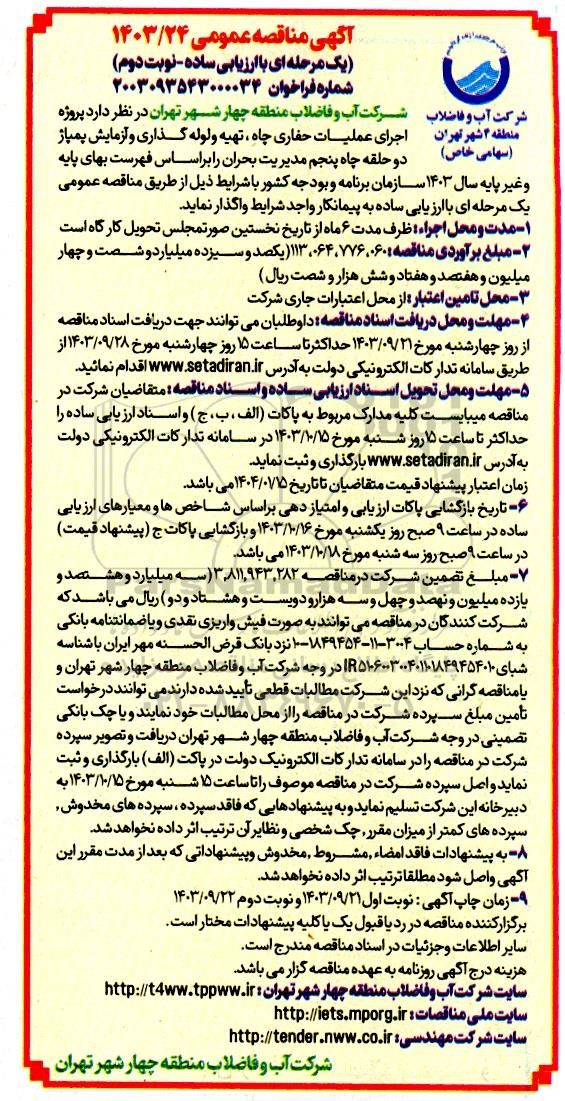 آگهی مناقصه عمومی ۱۴۰۳/۲۴
(یک مرحله ای با ارزیابی ساده - نوبت دوم)
شماره فراخوان ۲۰۰۳۰۹۳۵۴۳۰۰۰۰۳۴
شرکت آب و فاضلاب
منطقه ۴ شهر تهران
(سهامی خاص)
شرکت آب و فاضلاب منطقه چهار شهر تهران در نظر دارد پروژه
اجرای عملیات حفاری چاه ، تهیه و لوله گذاری و آزمایش پمپاژ
دو حلقه چاه پنجم مدیریت بحران را براساس فهرست بهای پایه
و غیر پایه سال ۱۴۰۳ سازمان برنامه و بودجه کشور با شرایط ذیل از طریق مناقصه عمومی
یک مرحله ای با ارزیابی ساده به پیمانکار واجد شرایط واگذار نماید.
۱- مدت و محل اجراء: ظرف مدت ۶ ماه از تاریخ نخستین صورتمجلس تحویل کارگاه است
۲- مبلغ برآوردی مناقصه: ۱۱۳,۰۶۴,۷۷۶,۰۶۰ (یکصد و سیزده میلیارد و شصت و چهار
میلیون و هفتصد و هفتاد و شش هزار و شصت ریال)
۳- محل تامین اعتبار: از محل اعتبارات جاری شرکت
۴- مهلت و محل دریافت اسناد مناقصه: داوطلبان می توانند جهت دریافت اسناد مناقصه
از روز چهارشنبه مورخ ۱۴۰۳/۰۹/۲۱ حداکثر تا ساعت ۱۵ روز چهارشنبه مورخ ۱۴۰۳/۰۹/۲۸ از
طریق سامانه تدارکات الکترونیکی دولت به آدرس www.setadiran.ir اقدام نمائید.
۵- مهلت و محل تحویل اسناد ارزیابی ساده و اسناد مناقصه: متقاضیان شرکت در
مناقصه میبایست کلیه مدارک مربوط به پاکات (الف ، ب ، ج) و اسناد ارزیابی ساده را
حداکثر تا ساعت ۱۵ روز شنبه مورخ ۱۴۰۳/۱۰/۱۵ در سامانه تدارکات الکترونیکی دولت
به آدرس www.setadiran.ir بارگذاری و ثبت نماید.
زمان اعتبار پیشنهاد قیمت متقاضیان تا تاریخ ۱۴۰۴/۰۱/۱۵ می باشد.
۶- تاریخ بازگشایی پاکات ارزیابی و امتیاز دهی براساس شاخص ها و معیارهای ارزیابی
ساده در ساعت ۹ صبح روز یکشنبه مورخ ۱۴۰۳/۱۰/۱۶ و بازگشایی پاکات ج (پیشنهاد قیمت)
در ساعت ۹ صبح روز سه شنبه مورخ ۱۴۰۳/۱۰/۱۸ می باشد.
۷- مبلغ تضمین شرکت در مناقصه ۳,۸۱۱,۹۴۳,۲۸۲ (سه میلیارد و هشتصد و
یازده میلیون و نهصد و چهل و سه هزار و دویست و هشتاد و دو) ریال می باشد که
شرکت کنندگان در مناقصه می توانند به صورت فیش واریزی نقدی و یا ضمانتنامه بانکی
به شماره حساب ۳۰۰۴-۱۱-۱۸۴۹۴۵۴-۱۰ نزد بانک قرض الحسنه مهر ایران با شناسه
شبای IR۵۱۰۶۰۰۳۰۰۴۰۱۱۰۱۸۴۹۴۵۴۰۱۰ در وجه شرکت آب و فاضلاب منطقه چهار شهر تهران و
یا مناقصه گرانی که نزد این شرکت مطالبات قطعی تأیید شده دارند می توانند درخواست
تأمین مبلغ سپرده شرکت در مناقصه را از محل مطالبات خود نمایند و یا چک بانکی
تضمینی در وجه شرکت آب و فاضلاب منطقه چهار شهر تهران دریافت و تصویر سپرده
شرکت در مناقصه را در سامانه تدارکات الکترونیک دولت در پاکت (الف) بارگذاری و ثبت
نماید و اصل سپرده شرکت در مناقصه موصوف را تا ساعت ۱۵ شنبه مورخ ۱۴۰۳/۱۰/۱۵ به
دبیرخانه این شرکت تسلیم نماید و به پیشنهادهایی که فاقد سپرده ، سپرده های مخدوش ,
سپرده های کمتر از میزان مقرر , چک شخصی و نظایر آن ترتیب اثر داده نخواهد شد.
۸- به پیشنهادات فاقد امضاء , مشروط , مخدوش و پیشنهاداتی که بعد از مدت مقرر این
آگهی واصل شود مطلقا ترتیب اثر داده نخواهد شد.
۹- زمان چاپ آگهی : نوبت اول ۱۴۰۳/۰۹/۲۱ و نوبت دوم ۱۴۰۳/۰۹/۲۲
برگزار کننده مناقصه در رد یا قبول یک یا کلیه پیشنهادات مختار است.
سایر اطلاعات و جزئیات در اسناد مناقصه مندرج است.
هزینه درج آگهی روزنامه به عهده مناقصه گزار می باشد.
سایت شرکت آب و فاضلاب منطقه چهار شهر تهران: http://t4ww.tppww.ir
سایت ملی مناقصات: http://iets.mporg.ir
سایت شرکت مهندسی: http://tender.nww.co.ir
شرکت آب و فاضلاب منطقه چهار شهر تهران